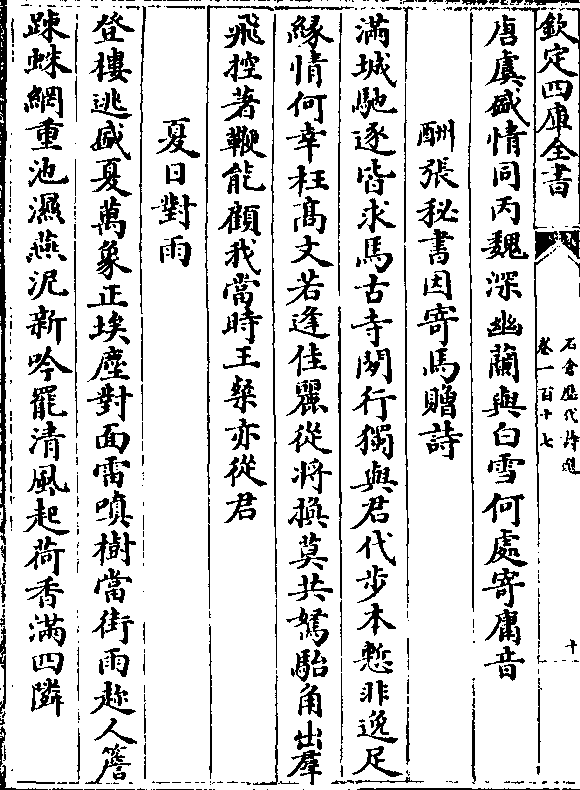 欽定四庫全書
石倉歷代詩選
卷一百十七
十
唐虞盛情同丙魏深幽蘭與白雪何處寄庸音
酬張秘書因寄馬贈詩
滿城馳逐皆求馬古寺閒行獨與君代步本慙非逸足
緣情何幸枉高文若逢佳麗從將換莫共駑駘角出羣
飛控著鞭能顧我當時王粲亦從君
夏日對雨
登樓逃盛夏萬象正埃塵對面雷嗔樹當街雨趂人簷
疎蛛網重池濕燕泥新吟罷清風起荷香滿四隣